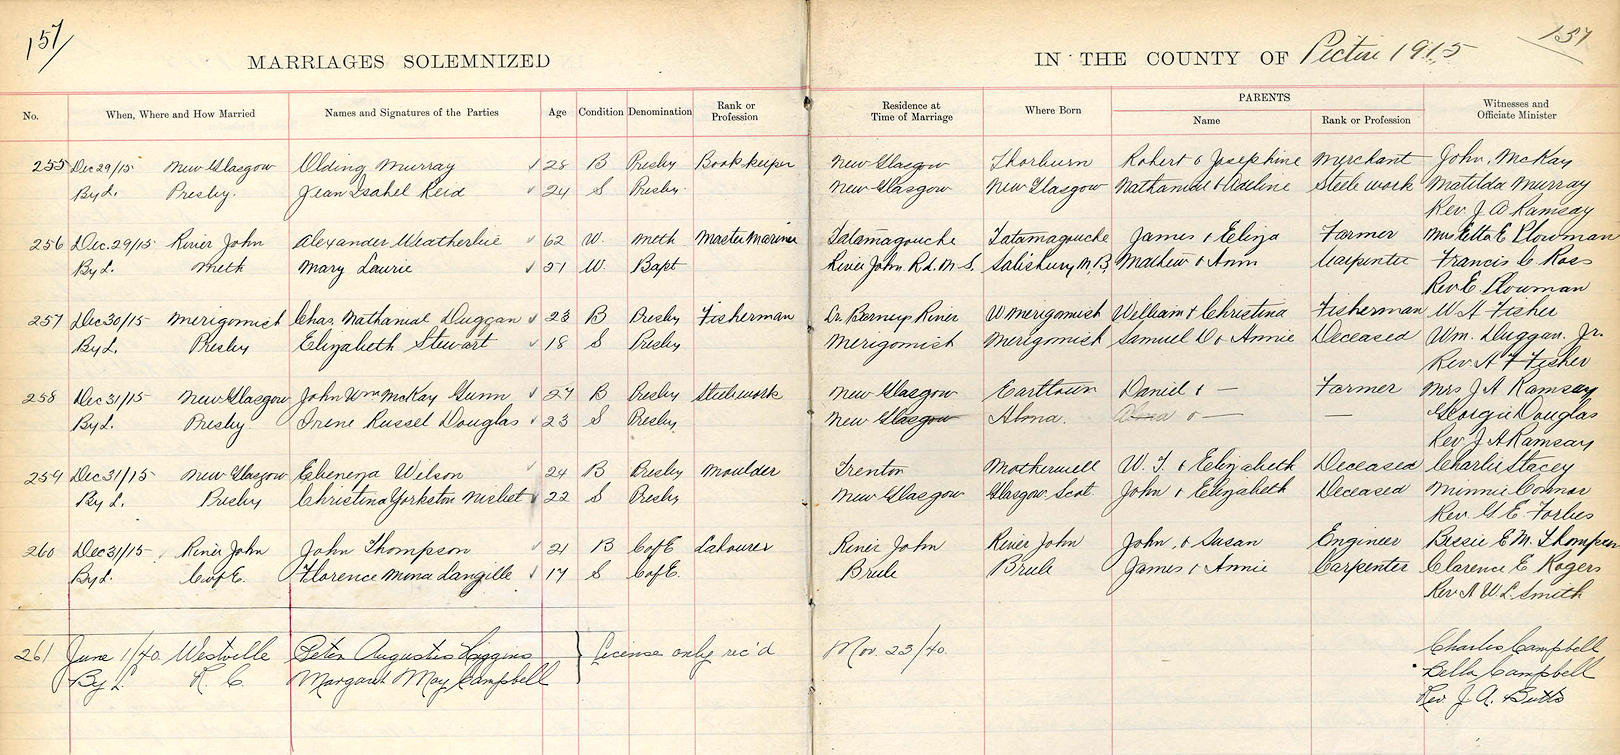 157
157
MARRIAGES SOLEMNIZED IN THE COUNTY OF Pictou 1915
No. When, Where and How Married Names and Signatures of the Parties Age Condition Denomination Rank or Profession Residence at Time of Marriage Where Born PARENTS Name Rank or Profession Witnesses and Officiate Minister
255 Dec 29/15 New Glasgow Olding Murray 28 B Presby Bookkeeper New Glasgow Thorburn Robert & Josephine Merchant John McKay
By L. Presby. Jean Isabel Reid 24 S Presby. New Glasgow New Glasgow Nathanial & Adeline Steele work Matilda Murray
Rev. J. A Ramsay
256 Dec. 29/15 River John Alexander Weatherbie 62 W. Meth Master Mariner Tatamagouche Tatamagouche James & Eliza Farmer Mrs Etta E Plowman
By L. Meth Mary Laurie 51 W. Bapt River John Rd. N. S. Salisbury N. B. Mathew & Ann Carpenter Francis C Ross
Rev E. Plowman
257 Dec 30/15 Merigomish Chas. Nathanial Duggan 23 B Presby Fisherman Barneys River W Merigomish William & Christina Fisherman W. A Fisher
By L. Presby Elizabeth Stewart 18 S Presby Merigomish Merigomish Samuel D & Annie Deceased Wm. Duggan. Jr.
Rev. A F Fisher
258 Dec 31/15 New Glasgow John Wm McKay Gunn 27 B Presby Steelework New Glasgow Earltown Daniel & — Farmer Mrs J A Ramsay
By L. Presby Irene Russel Douglas 23 S Presby New Glasgow Alma. & — — Georgie Douglas
Rev. J A Ramsay
259 Dec 31/15 New Glasgow Ebeneza Wilson 24 B Presby Moulder Trenton Motherwell W. T. & Elizabeth Deceased Charlie Stacey
By L. Presby Christina Yorkston Nisbet 22 S Presby New Glasgow Glasgow. Scot. John & Elizabeth Deceased Minnie Connor
Rev. G. E. Forbes
260 Dec 31/15 River John John Thompson 21 B C of E Labourer River John River John John & Susan Engineer Bessie E. M. Thompson
By L. C of E. Florence Mona Langille 17 S C of E. Brule Brule James & Annie Carpenter Clarence E Rogers
Rev A W L Smith
261 June 1/40 Westville Peter Augustus Higgins License only rec'd Nov. 23/40. Charles Campbell
By L. R C. Margaret May Campbell Bella Campbell
Rev. J. A. Butts